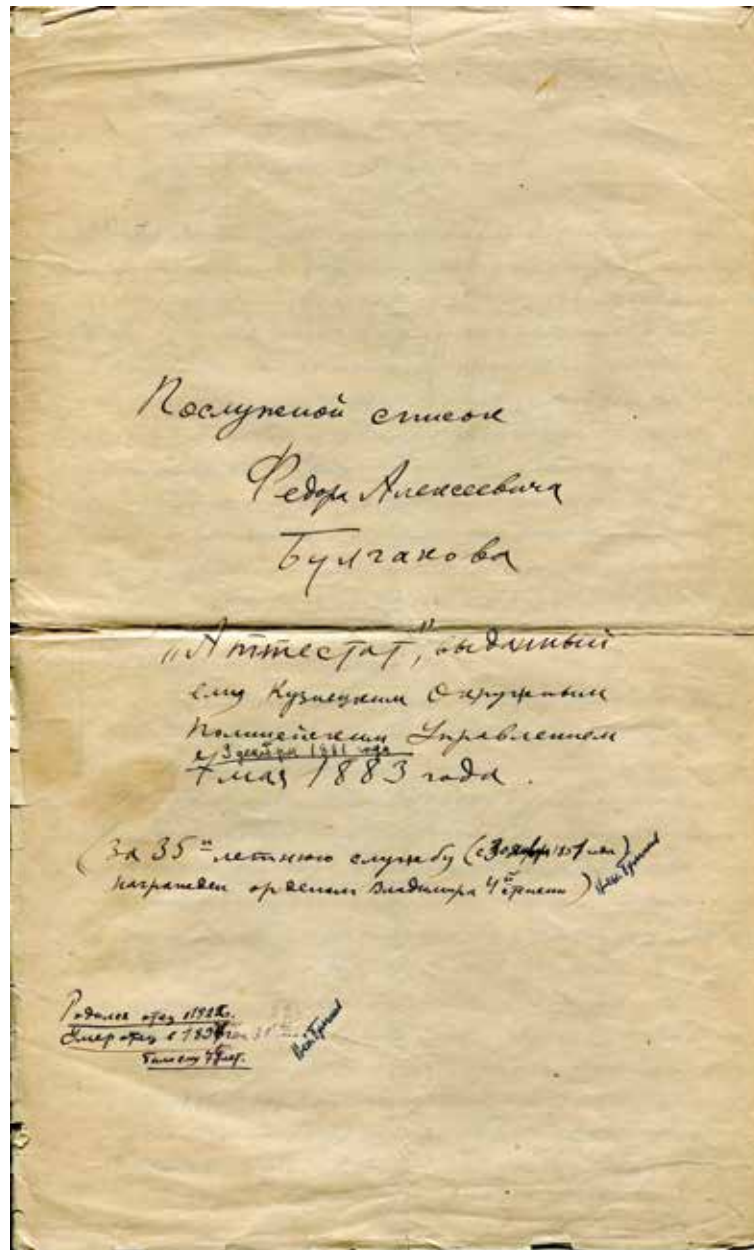 Послужной список
Федора Алексеевича
Булгакова
„Аттестат", выданный
ему Кузнецким Окружным
Полицейским Управлением
с 3 декабря 1881 года
7 мая 1883 года.
(За 35 летнюю службу (с 1851
награжден орденом Владимира 4 степени)
Родился отец в
Умер отец в
было ему лет.